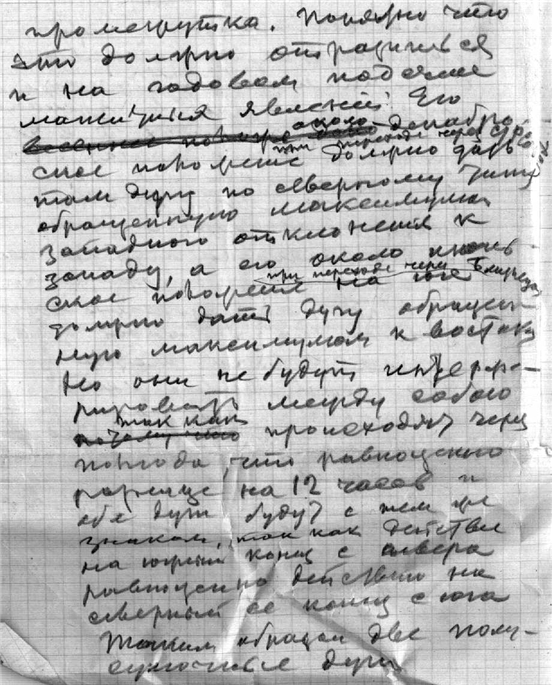 промежутка. Понятно что
это должно отразиться
и на годовом
явлений. Его
около декабрь-
при переходе через
ское положение должно дать
там дугу по северному
обращенную максимумом
западного отклонения к
западу, а его около июнь-
при переходе через Близнецы
ское положение на юге
должно дать дугу обращен-
ную максимумом к востоку
Но они не будут интерфе-
рировать между собою
так как
потому что происходят через
полгода, что равноценно
разнице на 12 часов и
обе дуги будут с тем же
знаком, так как действие
на южный конец с севера
равноценно действию на
северный ее конец с юга
Таким образом две полу-
суточные дуги